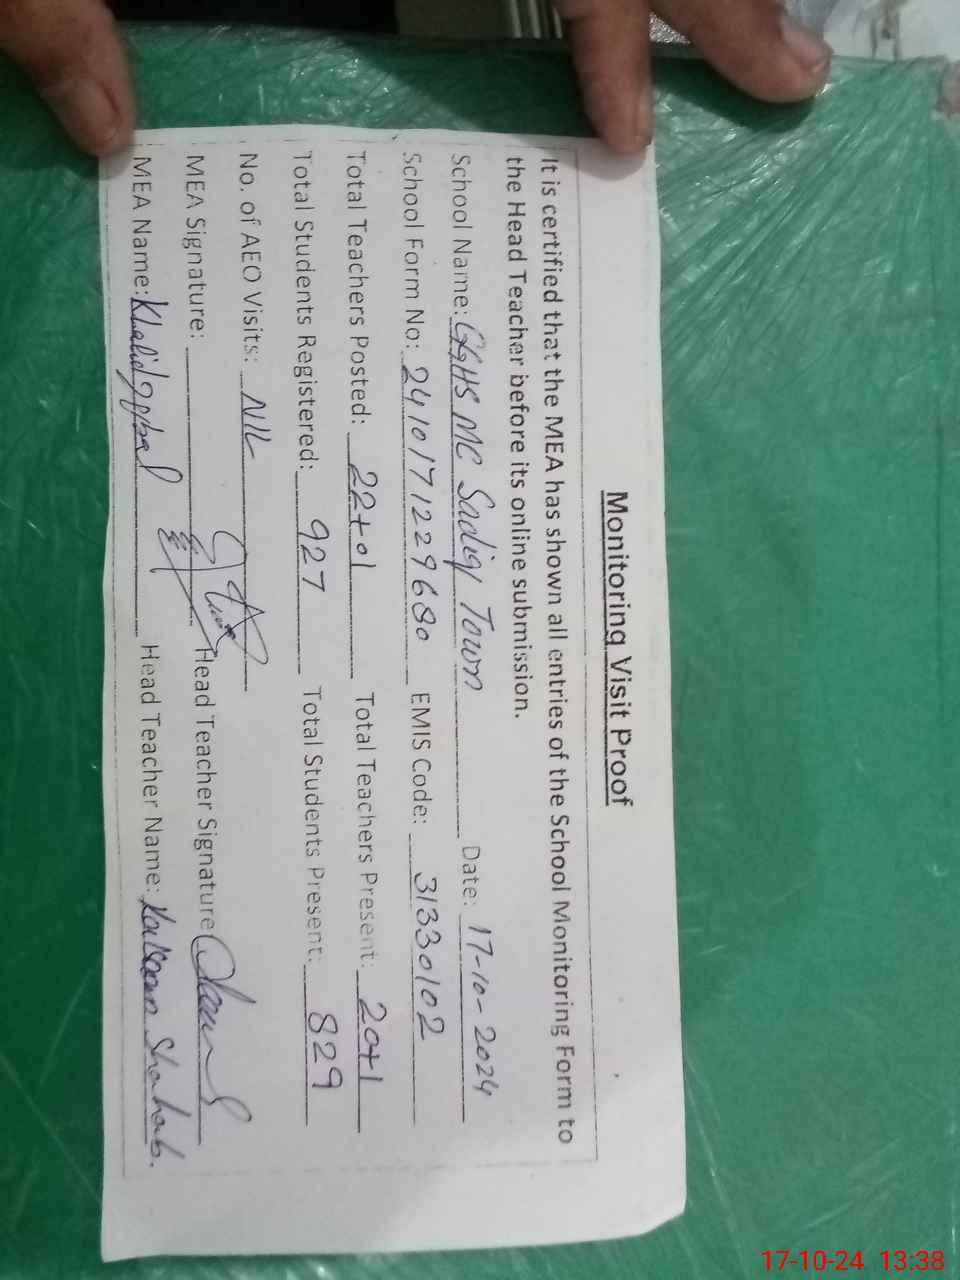 Monitoring Visit Proof
It is certified that the MEA has shown all entries of the School Monitoring Form to
the Head Teacher before its online submission.
School Name: GGHS MC Sadiq Town Date: 17-10-2024
School Form No: 2410171229680 EMIS Code: 31330102
Total Teachers Posted: 22+01 Total Teachers Present: 20+1
Total Students Registered: 927 Total Students Present: 829
No. of AEO Visits: NIL
MEA Signature: Head Teacher Signature
MEA Name: Khalid Iqbal Head Teacher Name: Kalsoom Shahab.
17-10-24 13:38